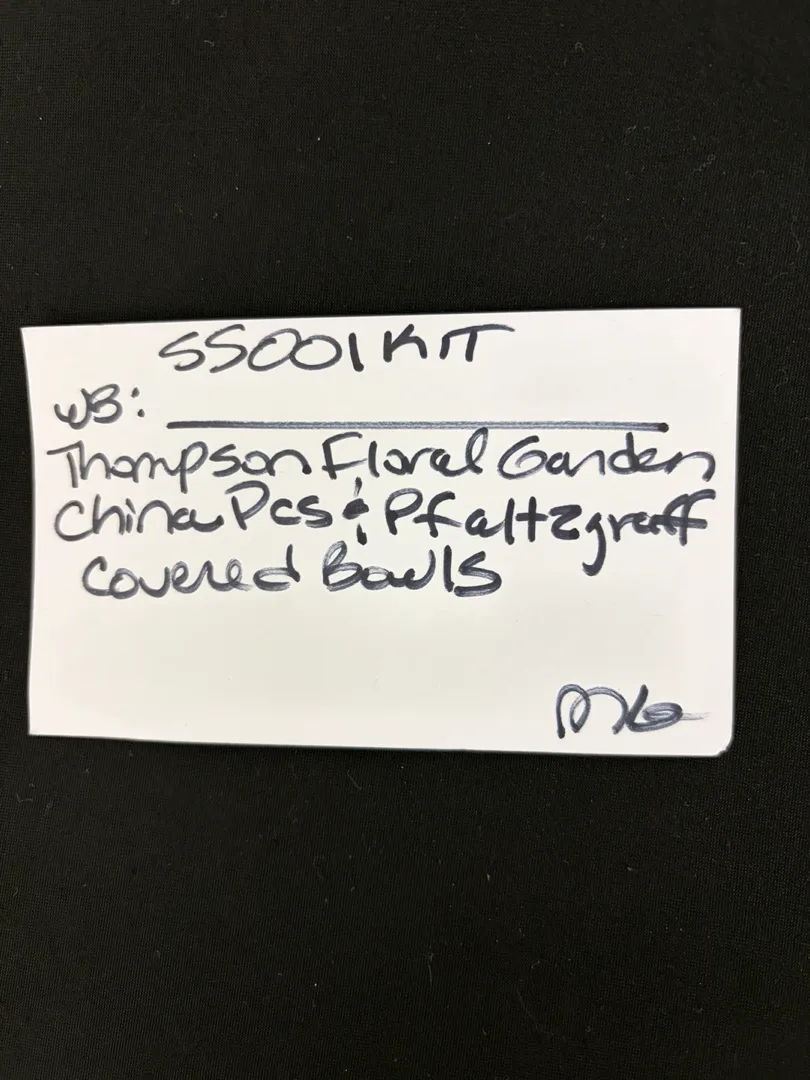 SS001 KIT
WB:
Thompson Floral Garden
China Pcs & Pfaltzgraff
Covered Bowls